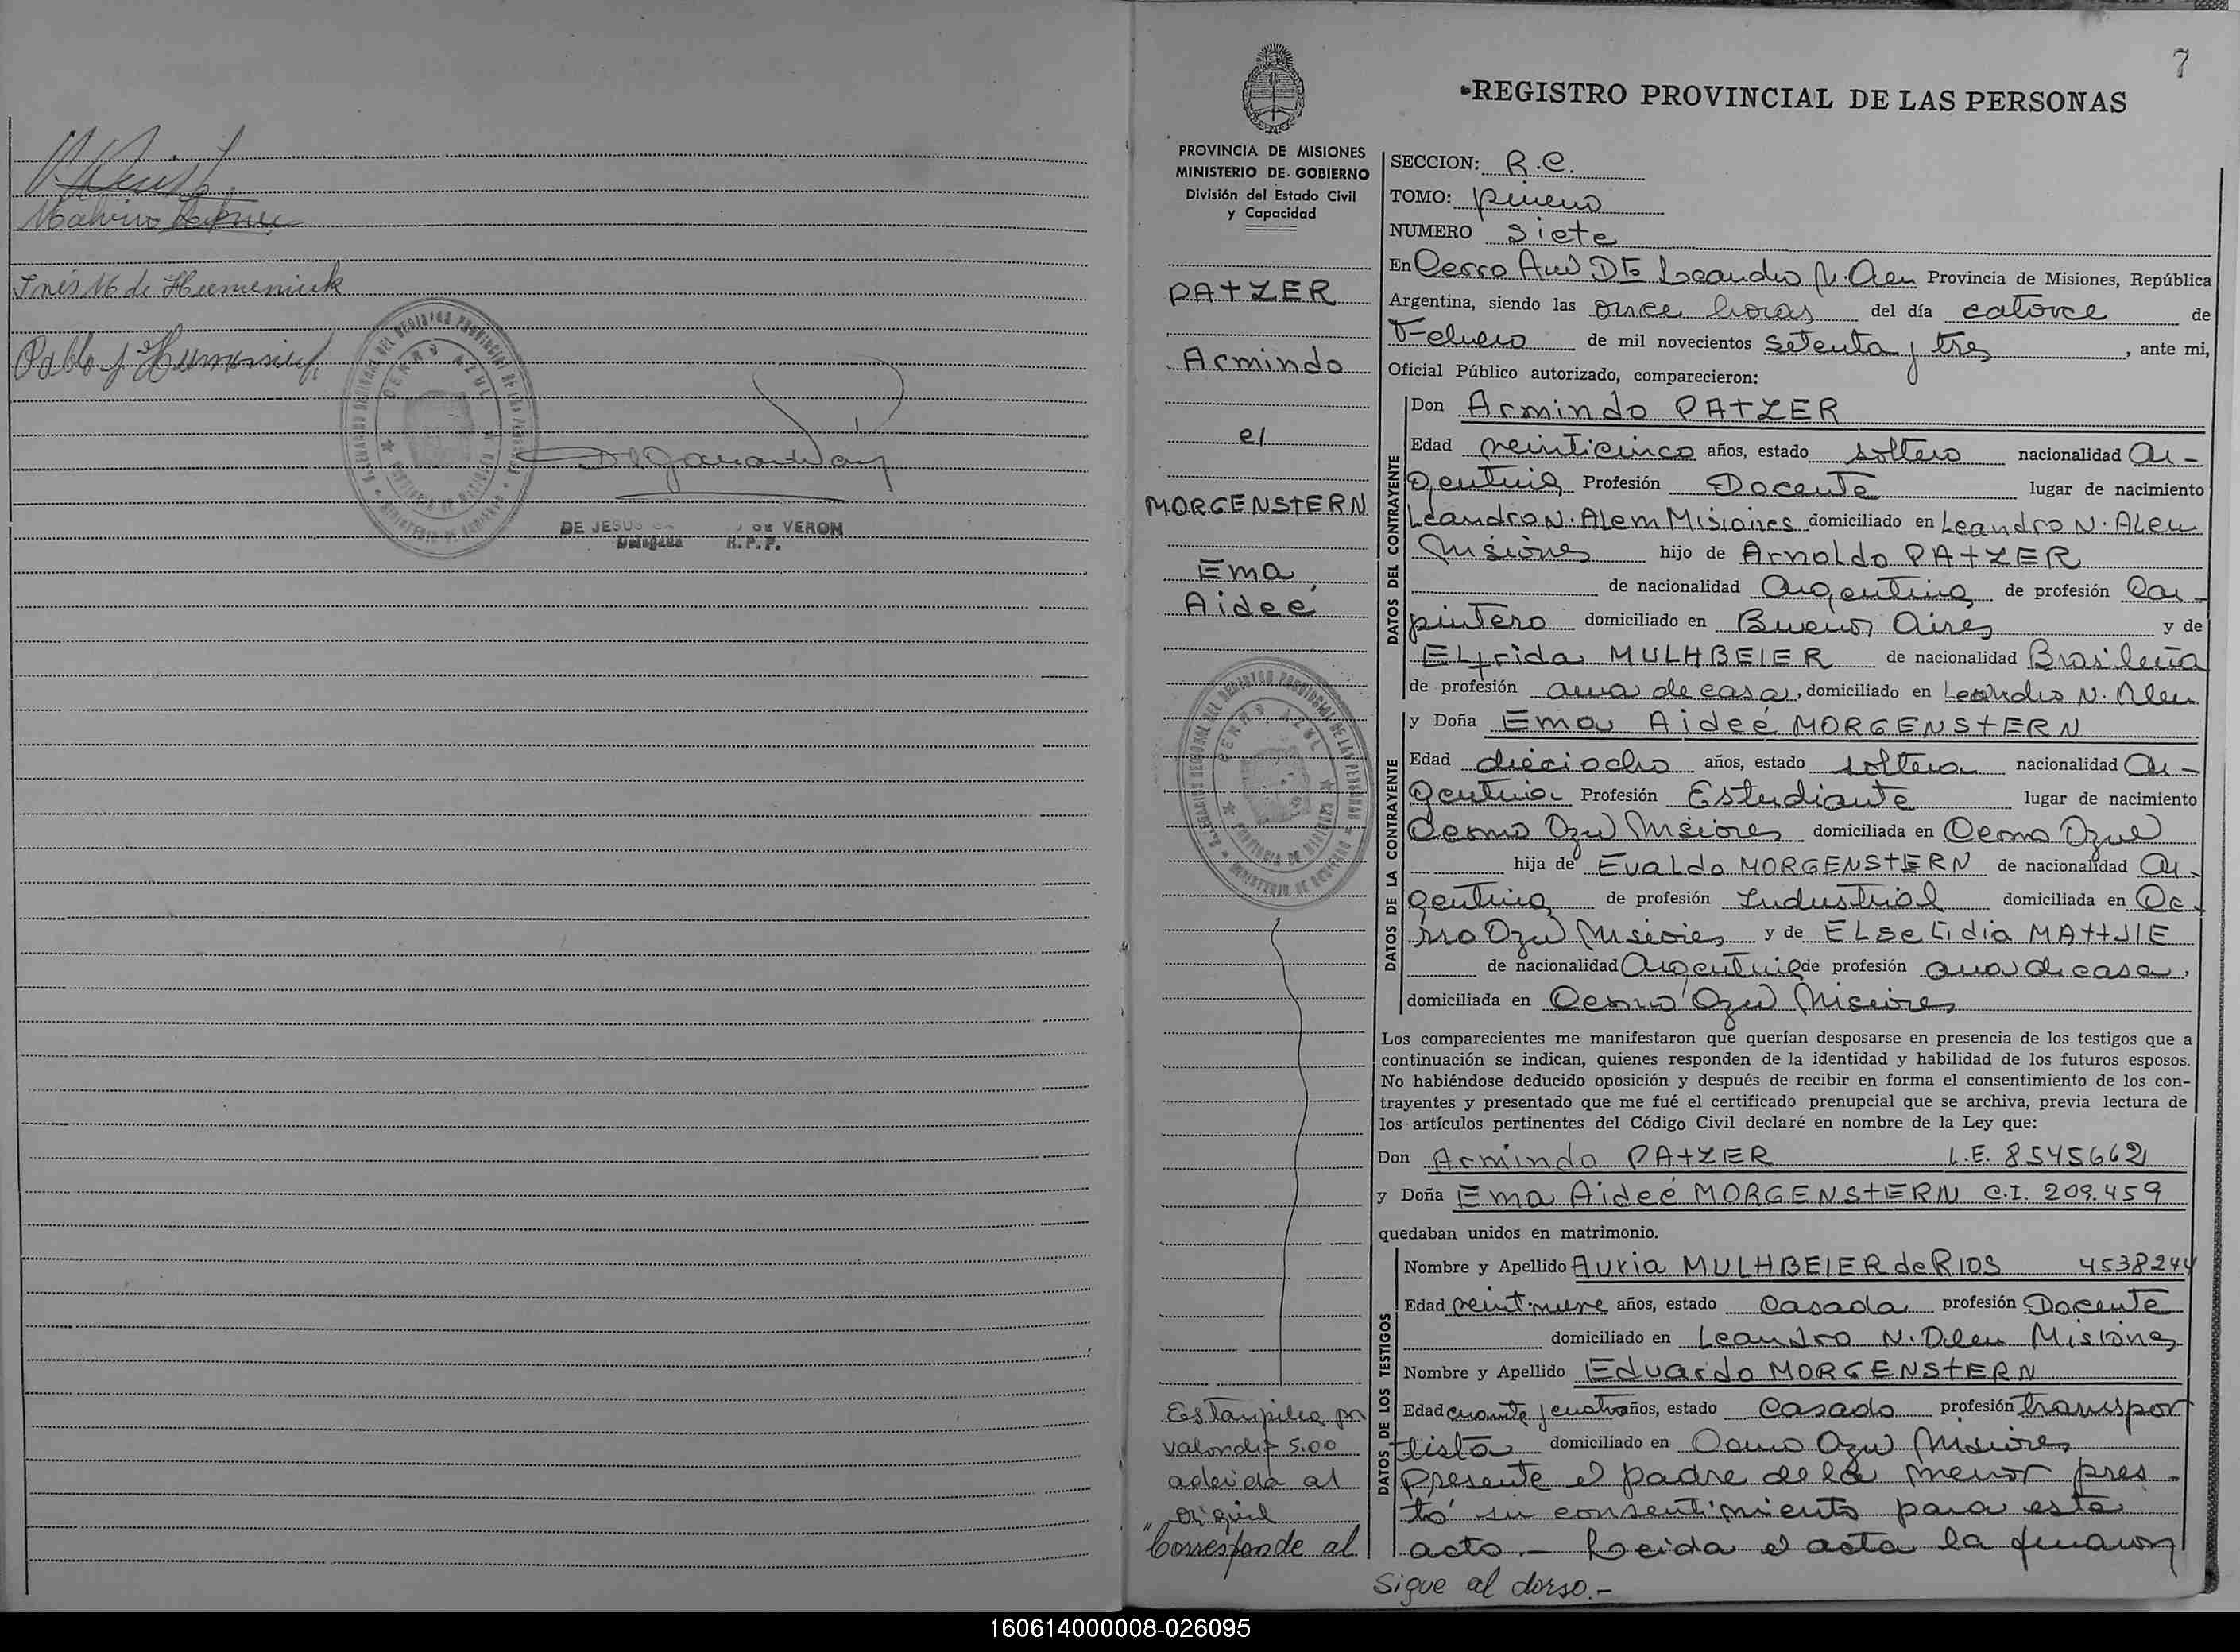 Malvino
Inés M de Humeniuk
Pablo J Humeniuk
DE JESUS DE VERON
Delegada R.P.P.
7
REGISTRO PROVINCIAL DE LAS PERSONAS
PROVINCIA DE MISIONES
MINISTERIO DE GOBIERNO
División del Estado Civil
y Capacidad
PATZER
Armindo
el
MORGENSTERN
Ema
Aideé
CERRO AZUL
Estampilla por
valor de $ 5.00
aderida al
original
"Corresponde al
SECCION: R.C.
TOMO: primero
NUMERO siete
En Cerro Azul Dto Leandro N. Alem Provincia de Misiones, República
Argentina, siendo las once horas del día catorce de
Febrero de mil novecientos setenta y tres, ante mi,
Oficial Público autorizado, comparecieron:
DATOS DEL CONTRAYENTE
Don Armindo PATZER
Edad veinticinco años, estado soltero nacionalidad Ar-
gentina Profesión Docente lugar de nacimiento
Leandro N. Alem Misiones domiciliado en Leandro N. Alem
Misiones hijo de Arnoldo PATZER
de nacionalidad Argentina de profesión Car-
pintero domiciliado en Buenos Aires y de
Elfrida MULHBEIER de nacionalidad Brasileña
de profesión ama de casa, domiciliado en Leandro N. Alem
DATOS DE LA CONTRAYENTE
y Doña Ema Aideé MORGENSTERN
Edad dieciocho años, estado soltera nacionalidad Ar-
gentina Profesión Estudiante lugar de nacimiento
Cerro Azul Misiones domiciliada en Cerro Azul
hija de Evaldo MORGENSTERN de nacionalidad Ar-
gentina de profesión Industrial domiciliada en Ce-
rro Azul Misiones y de ELse Lidia MATTJIE
de nacionalidad Argentina de profesión ama de casa,
domiciliada en Cerro Azul Misiones
Los comparecientes me manifestaron que querían desposarse en presencia de los testigos que a
continuación se indican, quienes responden de la identidad y habilidad de los futuros esposos.
No habiéndose deducido oposición y después de recibir en forma el consentimiento de los con-
trayentes y presentado que me fué el certificado prenupcial que se archiva, previa lectura de
los artículos pertinentes del Código Civil declaré en nombre de la Ley que:
Don Armindo PATZER L.E. 8545662
y Doña Ema Aideé MORGENSTERN C.I. 209.459
quedaban unidos en matrimonio.
DATOS DE LOS TESTIGOS
Nombre y Apellido Auria MULHBEIER de RIOS 4538244
Edad veintinueve años, estado Casada profesión Docente
domiciliado en Leandro N. Alem Misiones
Nombre y Apellido Eduardo MORGENSTERN
Edad cuarenta y cuatro años, estado Casado profesión transpor
tista domiciliado en Cerro Azul Misiones
Presente el padre de la menor pres-
tó su consentimiento para este
acto.- Leida el acta la firmaron
Sigue al dorso.-
160614000008-026095